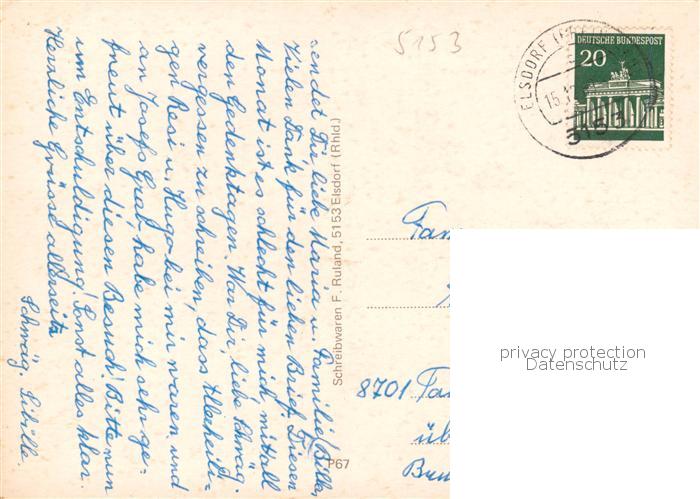 sendet Dir liebe Maria u. Familie, Billa,
Vielen Dank für den lieben Brief. Diesen
Monat ist es schlecht für mich mit all
den Gedenktagen. War Dir, liebe Schwäg.
vergessen zu schreiben, dass Allerheili-
gen Resi u. Hugo bei mir waren und
an Josefs Grab, habe mich sehr ge-
freut über diesen Besuch! Bitte nun
um Entschuldigung! Sonst alles klar.
Herzliche Grüsse allerseits
Schwäg. Sibille.
Schreibwaren F. Ruland, 5153 Elsdorf (Rhld.)
P67
5153
ELSDORF
15.1
5153
DEUTSCHE BUNDESPOST
20
Fam
8701
üb
privacy protection
Datenschutz